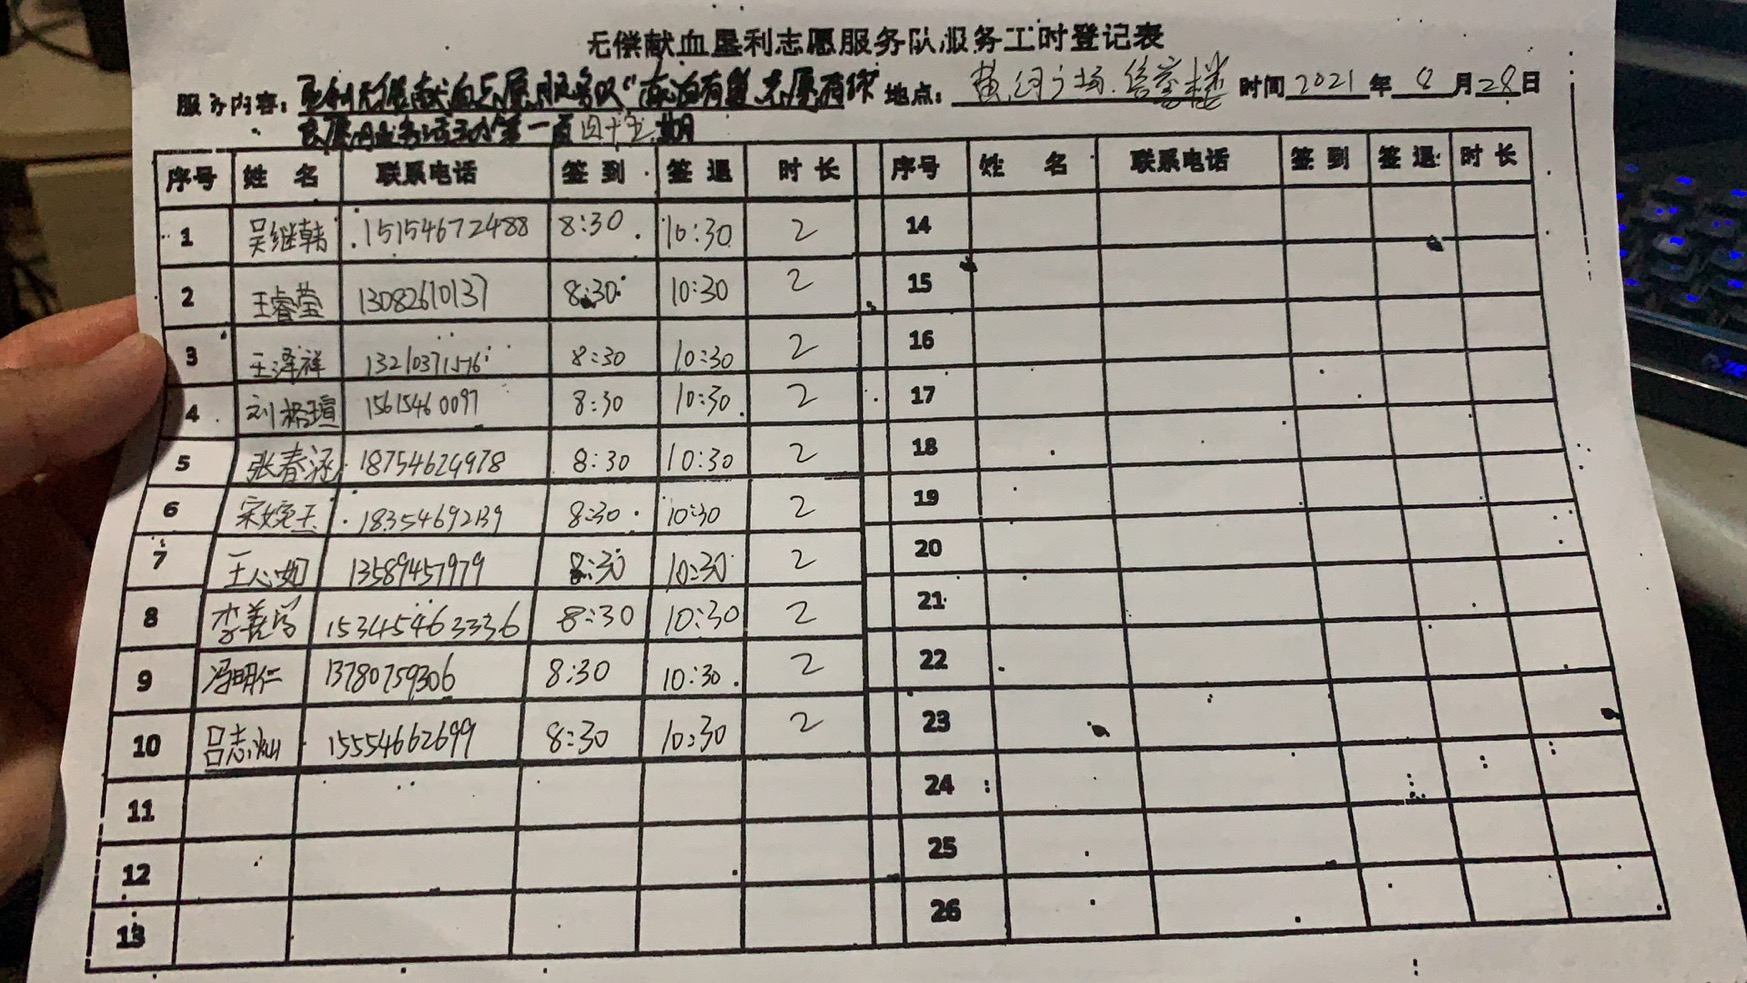 无偿献血垦利志愿服务队服务工时登记表
服务内容：垦利无偿献血志愿服务队"献血有益 志愿有你" 地点：黄河广场.信誉楼 时间2021年8月28日
志愿服务活动第一百四十五期
序号 姓名 联系电话 签到 签退 时长 序号 姓名 联系电话 签到 签退 时长
1 吴继韩 15154672488 8:30 10:30 2 14
2 王睿莹 13082610137 8:30 10:30 2 15
3 王泽祥 13210371576 8:30 10:30 2 16
4 刘 瑄 15615460097 8:30 10:30 2 17
5 张春涵 18754624978 8:30 10:30 2 18
6 宋婉玉 18354692139 8:30 10:30 2 19
7 王心如 13589457979 8:30 10:30 2 20
8 李義 15345463336 8:30 10:30 2 21
9 冯明仁 13780759306 8:30 10:30 2 22
10 吕志灿 15554662699 8:30 10:30 2 23
11 24
12 25
13 26